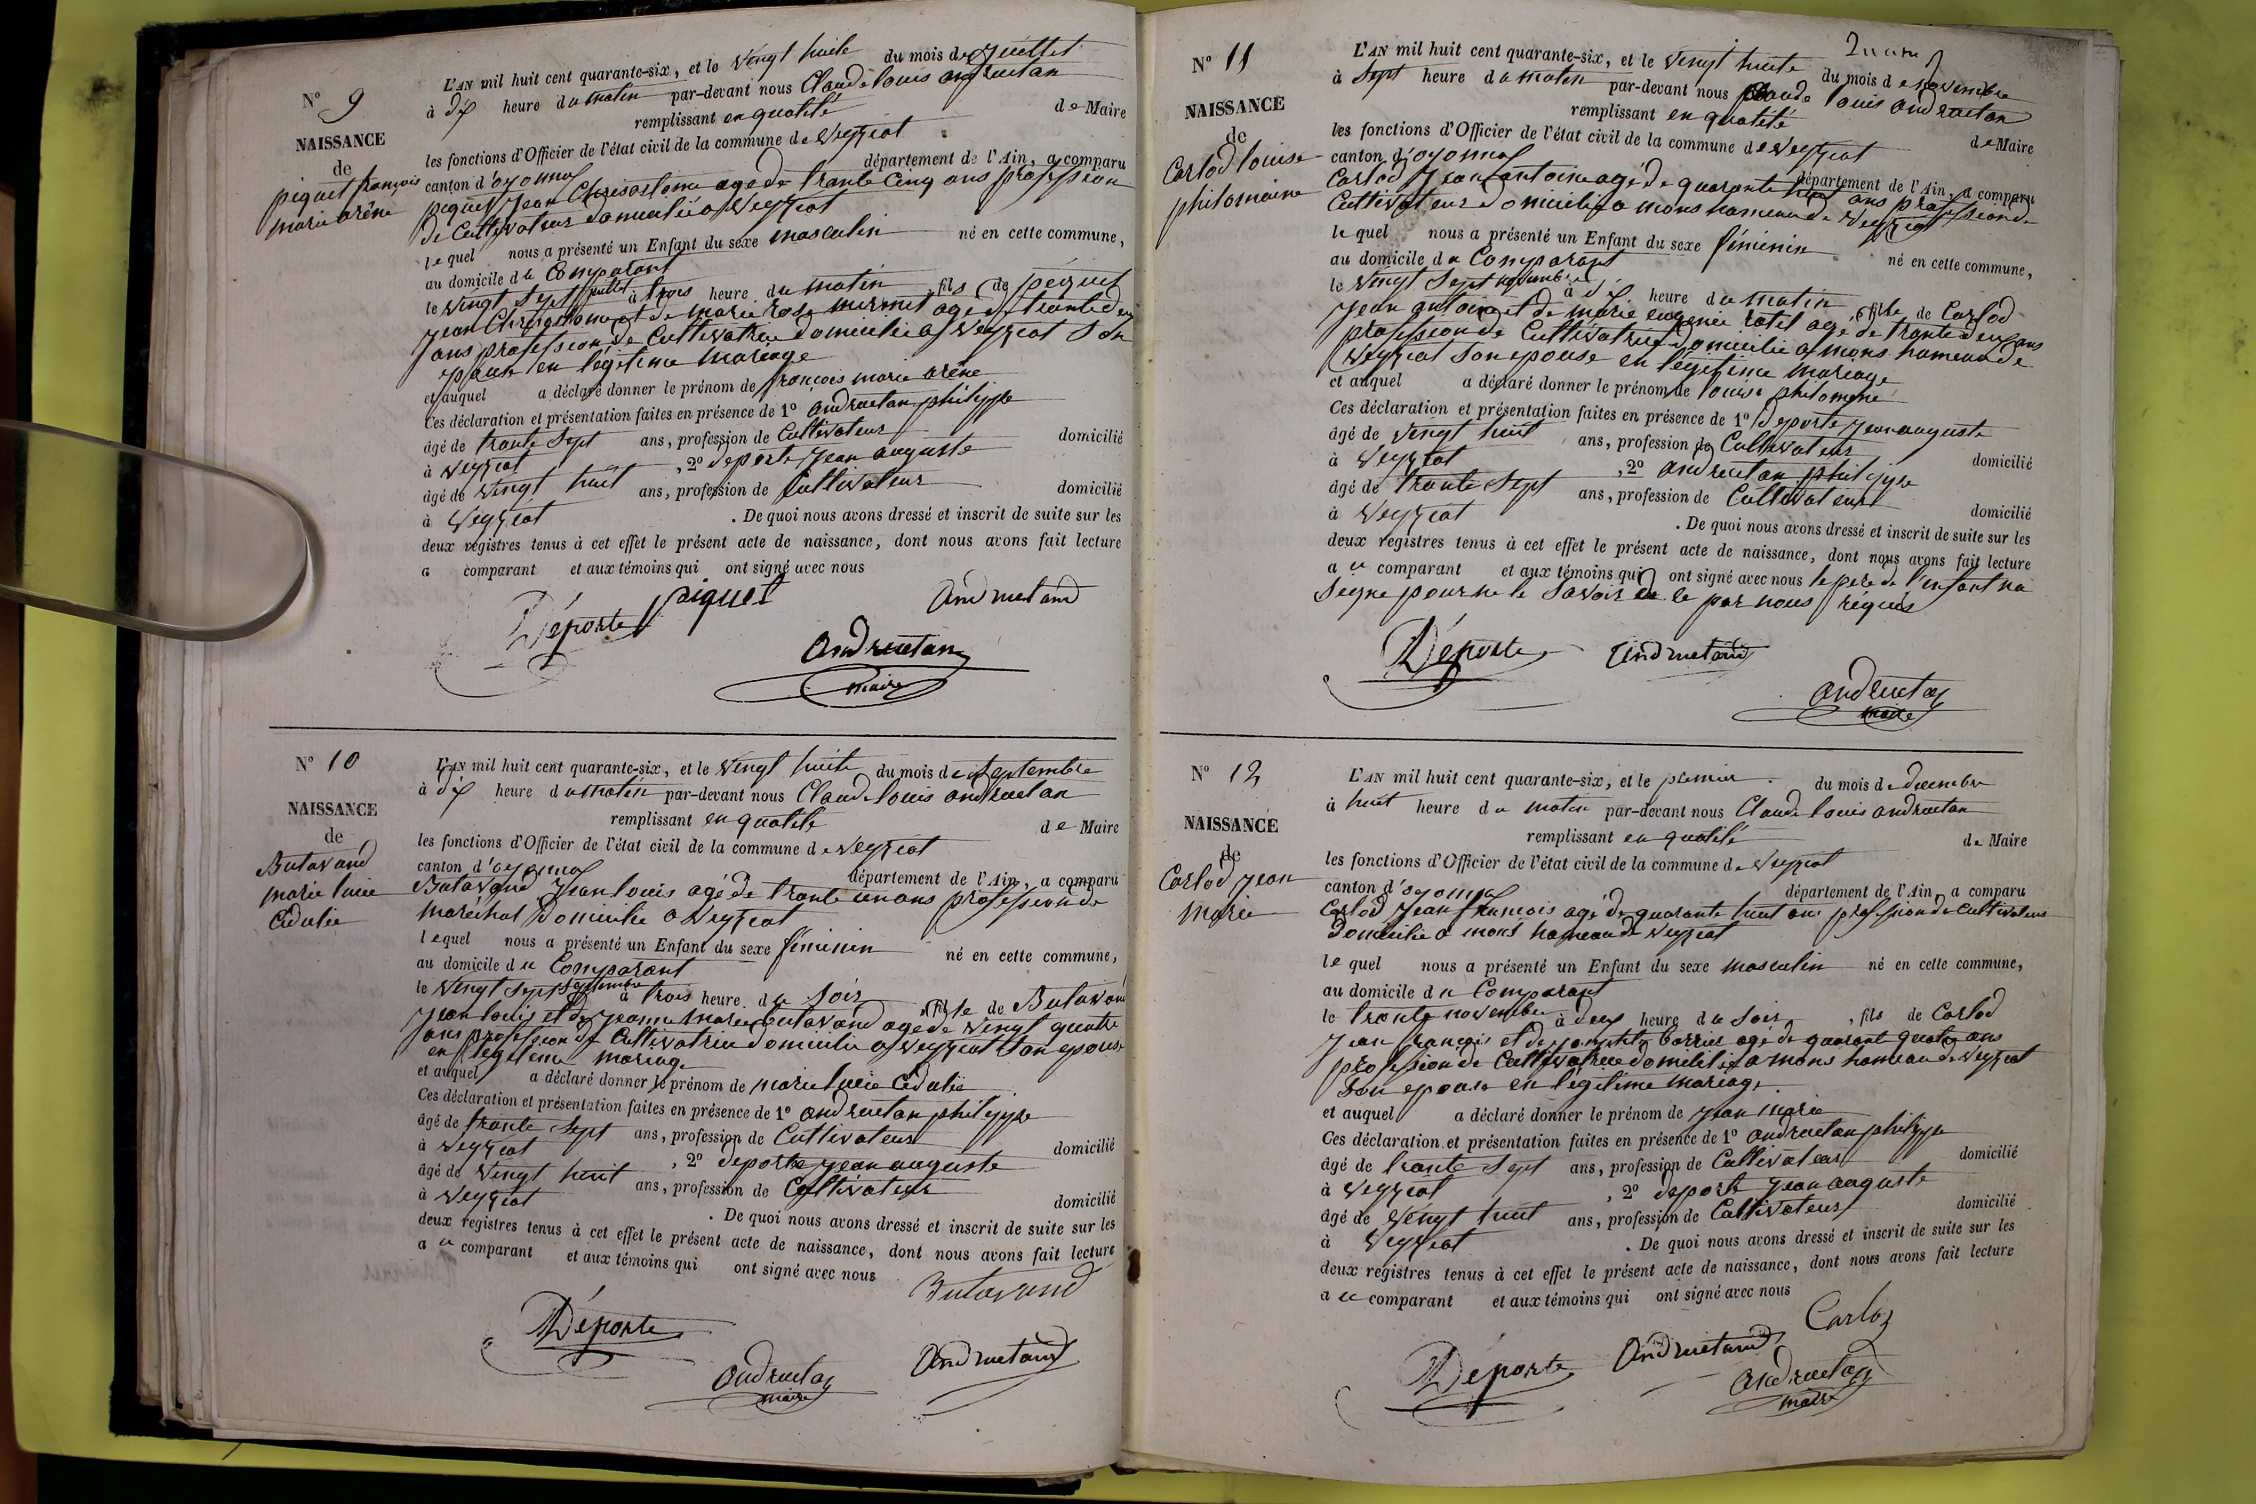 N° 9
NAISSANCE
de
piquet françois
marie aréné
L'AN mil huit cent quarante-six, et le vingt huite du mois de juillet
à dix heure du matin par-devant nous Claude louis andruetan
remplissant en qualité de Maire
les fonctions d'Officier de l'état civil de la commune de veyziat
canton d'oyonnax département de l'Ain, a comparu
piquet jean Chrisostome agé de trante cinq ans profession
de Cultivateur domicilié a Veyziat
lequel nous a présenté un Enfant du sexe masculin né en cette commune,
au domicile du Comparant
le vingt sept juillet à trois heure du matin fils de péquet
jean Chrisostome et de marie rose mermet agé de trante deux
ans profession de Cultivatrice domicilié a veyziat son
epouse en légitime mariage
et auquel a déclaré donner le prénom de françois marie aréne
Ces déclaration et présentation faites en présence de 1° andruetan philippe
âgé de trante sept ans, profession de Cultivateur domicilié
à veyziat , 2° deporte jean auguste
âgé de vingt huit ans, profession de Cultivateur domicilié
à Veyziat . De quoi nous avons dressé et inscrit de suite sur les
deux registres tenus à cet effet le présent acte de naissance, dont nous avons fait lecture
a comparant et aux témoins qui ont signé avec nous
Déporte piquet Andruetand
andruetan
maire
N° 10
NAISSANCE
de
Butavand
marie lucie
Cédulie
L'AN mil huit cent quarante-six, et le vingt huite du mois de septembre
à dix heure du matin par-devant nous Claude louis andruetan
remplissant en qualité de Maire
les fonctions d'Officier de l'état civil de la commune de veyziat
canton d'oyonnax département de l'Ain, a comparu
Butavand jean louis agé de trante un ans profession de
maréchal domicilié a Veyziat
lequel nous a présenté un Enfant du sexe féminin né en cette commune,
au domicile du Comparant
le vingt sept septembre à trois heure du soir fille de Butavand
jean louis et de jeanne marie butavand agé de vingt quatre
ans profession de Cultivatrice domicilié a veyziat son epouse
en légitime mariage
et auquel a déclaré donner le prénom de marie lucie Cédulie
Ces déclaration et présentation faites en présence de 1° andruetan philippe
âgé de trante sept ans, profession de Cultivateur domicilié
à veyziat , 2° deporte jean auguste
âgé de vingt huit ans, profession de Cultivateur domicilié
à veyziat . De quoi nous avons dressé et inscrit de suite sur les
deux registres tenus à cet effet le présent acte de naissance, dont nous avons fait lecture
a u comparant et aux témoins qui ont signé avec nous
Butavand
Déporte
andruetan
maire
Andruetand
N° 11
NAISSANCE
de
Carlod louise
philomaine
L'AN mil huit cent quarante-six, et le vingt huite du mois de novembre
à sept heure du matin par-devant nous Claude louis andruetan
remplissant en qualité de Maire
les fonctions d'Officier de l'état civil de la commune de veyziat
canton d'oyonnax département de l'Ain, a comparu
Carlod jean antoine agé de quarante ans profession de
Cultivateur domicilié a mons hameau de veyziat
le quel nous a présenté un Enfant du sexe féminin né en cette commune,
au domicile du Comparant
le vingt sept novembre à dix heure du matin fille de Carlod
jean antoine et de marie eugenie ratel agé de trante deux ans
profession de Cultivatrice domicilié a mons hameau de
Veyziat son epouse en légitime mariage
et auquel a déclaré donner le prénom de louise philomène
Ces déclaration et présentation faites en présence de 1° deporte jean auguste
âgé de vingt huit ans, profession de Cultivateur domicilié
à Veyziat , 2° andruetan philippe
âgé de trante sept ans, profession de Cultivateur domicilié
à veyziat . De quoi nous avons dressé et inscrit de suite sur les
deux registres tenus à cet effet le présent acte de naissance, dont nous avons fait lecture
a u comparant et aux témoins qui ont signé avec nous le pere de l'enfant na
signe pour ne le savoir de ce par nous réquis
Déporte Andruetand
andruetan
maire
N° 12
NAISSANCE
de
Carlod jean
marie
L'AN mil huit cent quarante-six, et le premier du mois de decembre
à huit heure du matin par-devant nous Claude louis andruetan
remplissant en qualité de Maire
les fonctions d'Officier de l'état civil de la commune de veyziat
canton d'oyonnax département de l'Ain, a comparu
Carlod jean françois agé de quarante huit ans profession de Cultivateur
domicilié a mons hameau de veyziat
le quel nous a présenté un Enfant du sexe masculin né en cette commune,
au domicile du Comparant
le trante novembre à deux heure du soir , fils de Carlod
jean françois et de agé de quarant quatre ans
profession de Cultivatrice domicilié a mons hameau de Veyziat
son epouse en légitime mariage
et auquel a déclaré donner le prénom de jean marie
Ces déclaration et présentation faites en présence de 1° andruetan philippe
âgé de trante sept ans, profession de Cultivateur domicilié
à veyziat , 2° deporte jean auguste
âgé de vingt huit ans, profession de Cultivateur domicilié
à Veyziat . De quoi nous avons dressé et inscrit de suite sur les
deux registres tenus à cet effet le présent acte de naissance, dont nous avons fait lecture
a u comparant et aux témoins qui ont signé avec nous
Carloz
Déporte Andruetand
andruetan
maire